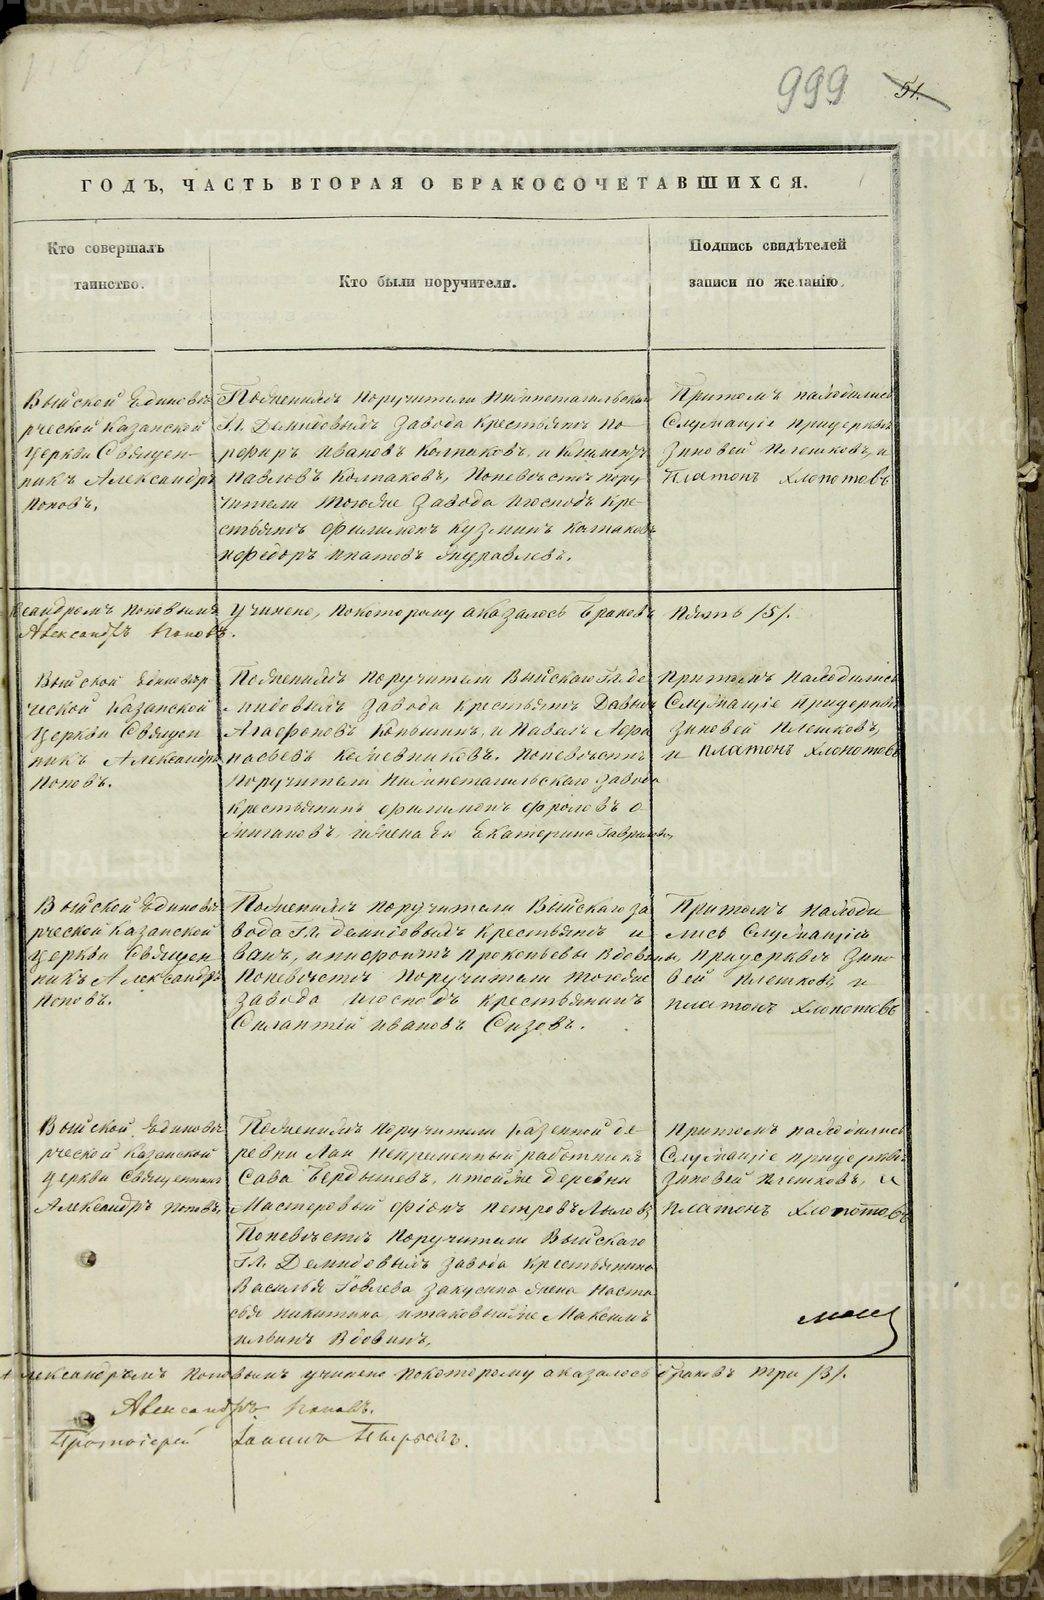 999 51.
ГОДЪ, ЧАСТЬ ВТОРАЯ О БРАКОСОЧЕТАВШИХСЯ.
Кто совершалъ
таинство.
Кто были поручители.
Подпись свидѣтелей
записи по желанію.
Выйской Единовѣ
рческой Казанской
церкви Священ-
никъ Александръ
Поповъ.
Поженихѣ поручители Нижнетагильскаго
Гг. Демидовыхъ завода крестьяне По-
рфиръ Ивановъ Колпаковъ, и Климентъ
Павловъ Колпаковъ, Поневѣстѣ пору
чители тогоже завода Игосподъ кре-
стьяне Филимонъ Кузминъ Колпаковъ
ифедоръ Игнатовъ Журавлевъ.
Притомъ находились
Служащіе прицерквѣ
Зиновей Плешковъ, и
Платонъ Хлопотовъ
ксандромъ Поповымъ учинено, покоторому оказалось браковъ пять /5/.
Александръ Поповъ.
Выйской Единовѣр
ческой Казанской
Церкви Священ
никъ Александръ
Поповъ.
Поженихѣ поручители Выйскаго Гг. Де
мидовыхъ завода крестьяне Давыдъ
Агафоновъ Коньшинъ, и Павелъ Афон
насьевъ Кожевниковъ. Поневѣстѣ
поручители Нижнетагильскаго завода
крестьянинъ Филимонъ Фроловъ О
жигановъ, ижена Ево Екатерина Гаврилова,
Притомъ находились
Служащіе прицерквѣ
Зиновей Плешковъ,
и Платонъ Хлопотовъ
Выйской Единовѣ
рческой Казанской
церкви Священ
никъ Александръ
Поповъ.
Поженихѣ поручители Выйскаго за
вода Гг. Демидовыхъ крестьяне И
ванъ, и Нифонтъ Прокопьевы Вдовины,
Поневѣстѣ поручители тогоже
завода игосподъ крестьянинъ
Силантій Ивановъ Сизовъ.
Притомъ находи
лись Служащіи
прицерквѣ Зино
вей Плешковъ и
Платонъ Хлопотовъ
Выйской Единовѣ
рческой Казанской
церкви Священникъ
Александръ Поповъ.
Поженихѣ поручители Казенной де
ревни Лаи Непременный работникъ
Сава Бердышевъ, итойже деревни
Мастеровый Фіонъ Петровъ Лыловъ,
Поневѣстѣ поручители Выйскаго
Гг. Демидовыхъ завода крестьянина
Василья Говлева Закусина жена Наста
сья Никитина итаковыйже Максимъ
Ильинъ Вдовинъ.
Притомъ находились
Служащіе прицерквѣ
Зиновей Плешковъ, и
Платонъ Хлопотовъ
Александромъ Поповымъ учинено покоторому оказалось браковъ три /3/.
Александръ Поповъ.
Протоіерей Іоаннъ Пырьевъ.